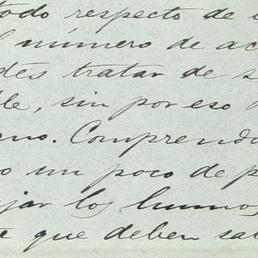 todo respecto de
l número de ac
des tratar de s
le, sin por eso
no. Comprendo
o un poco de p
jar los humos
e que deben sa